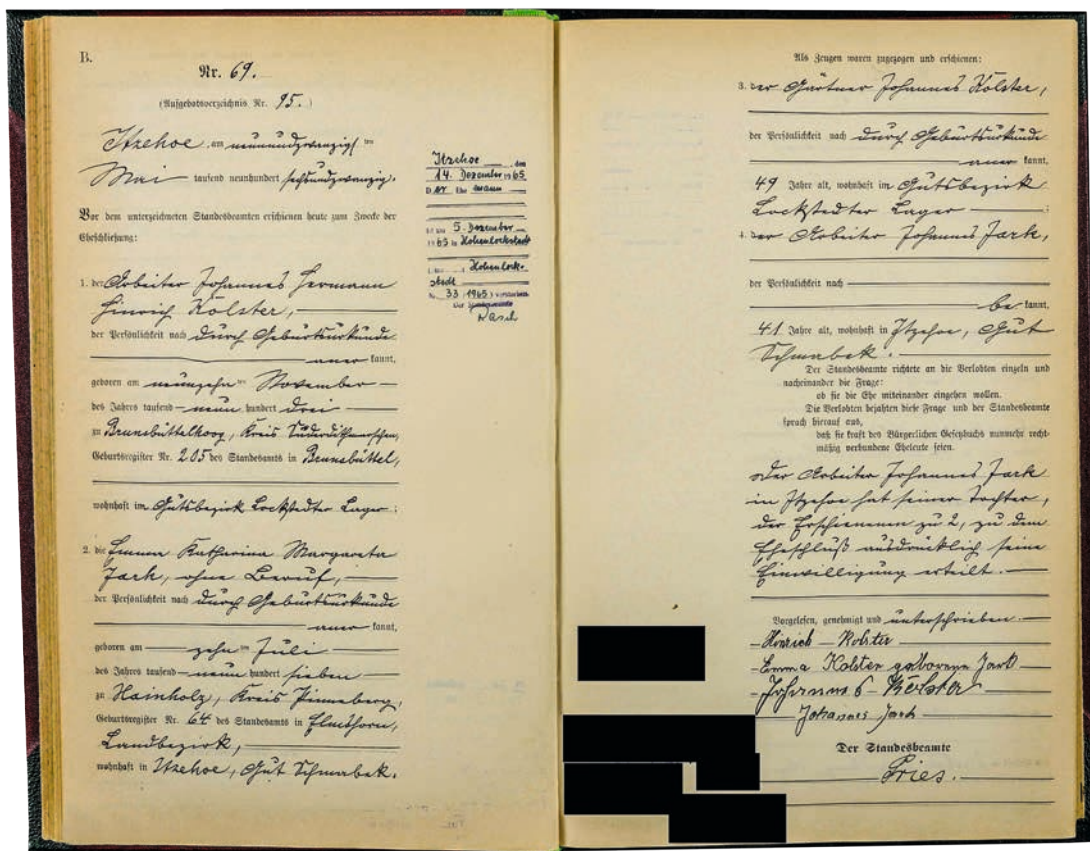 B.
Nr. 69.
(Aufgebotsverzeichnis Nr. 95.)
Itzehoe, am neunundzwanzigsten
Mai tausend neunhundert sechsundzwanzig.
Vor dem unterzeichneten Standesbeamten erschienen heute zum Zwecke der
Eheschließung:
1. der Arbeiter Johannes Hermann
Hinrich Kölster,
der Persönlichkeit nach durch Geburtsurkunde
anerkannt,
geboren am neunzehnten November
des Jahres tausend neunhundert drei
zu Brunsbüttelkoog, Kreis Süderdithmarschen,
Geburtsregister Nr. 205 des Standesamts in Brunsbüttel,
wohnhaft im Gutsbezirk Lockstedter Lager;
2. die Emma Katharina Margareta
Jark, ohne Beruf,
der Persönlichkeit nach durch Geburtsurkunde
anerkannt,
geboren am zehnten Juli
des Jahres tausend neunhundert sieben
zu Hainholz, Kreis Pinneberg,
Geburtsregister Nr. 64 des Standesamts in Elmshorn,
Landbezirk,
wohnhaft in Itzehoe, Gut Schmabek.
Itzehoe, den
14. Dezember 1965
Der Ehemann
ist am 5. Dezember
1965 in Hohenlockstedt
Hohenlock-
stedt
Nr. 33/1965) verstorben.
Der Standesbeamte
Rasch
Als Zeugen waren zugezogen und erschienen:
3. der Gärtner Johannes Kölster,
der Persönlichkeit nach durch Geburtsurkunde
anerkannt,
49 Jahre alt, wohnhaft im Gutsbezirk
Lockstedter Lager;
4. der Arbeiter Johannes Jark,
der Persönlichkeit nach
bekannt,
41 Jahre alt, wohnhaft in Itzehoe, Gut
Schmabek.
Der Standesbeamte richtete an die Verlobten einzeln und
nacheinander die Frage:
ob sie die Ehe miteinander eingehen wollen.
Die Verlobten bejahten diese Frage und der Standesbeamte
sprach hierauf aus,
daß sie kraft des Bürgerlichen Gesetzbuchs nunmehr recht-
mäßig verbundene Eheleute seien.
Der Arbeiter Johannes Jark
in Itzehoe hat seiner Tochter,
der Erschienenen zu 2, zu dem
Eheschluß ausdrücklich seine
Einwilligung erteilt.
Vorgelesen, genehmigt und unterschrieben.
Hinrich Kolster
Emma Kolster geborene Jark
Johannes Kölster
Johannes Jark
Der Standesbeamte
Fries.